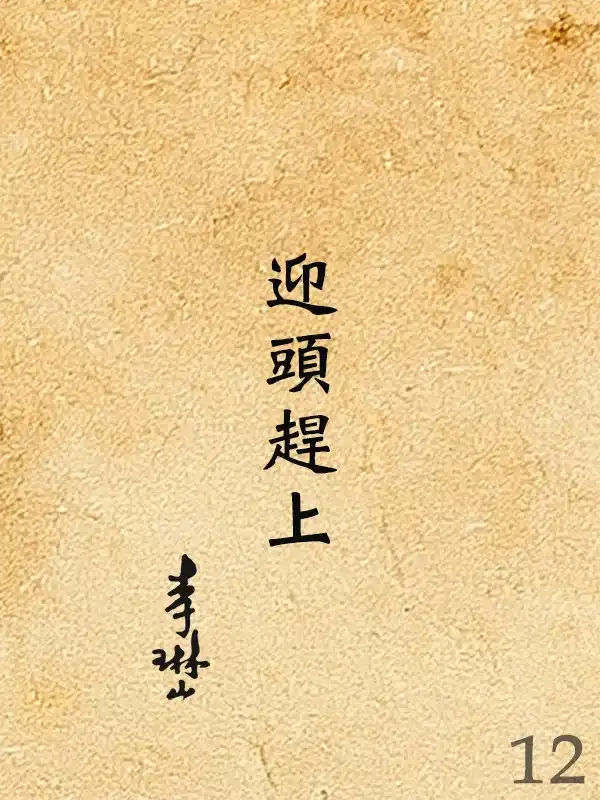 迎頭趕上
李琳山
12